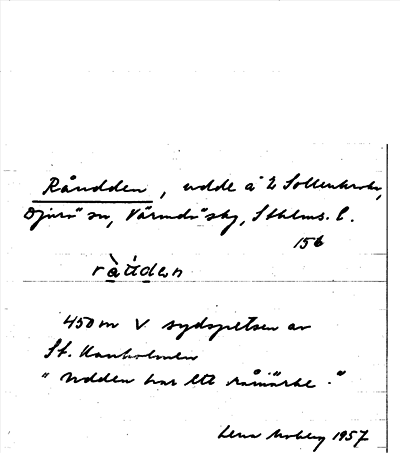 Råudden, udde å 2 Sollenkroka,
Djurö sn, Värmdö skg, Sthlms. l.
156
rå̀ùden
450 m V sydspetsen av
St. Kanholmen
"Udden har ett råmärke."
Lena Moberg 1957